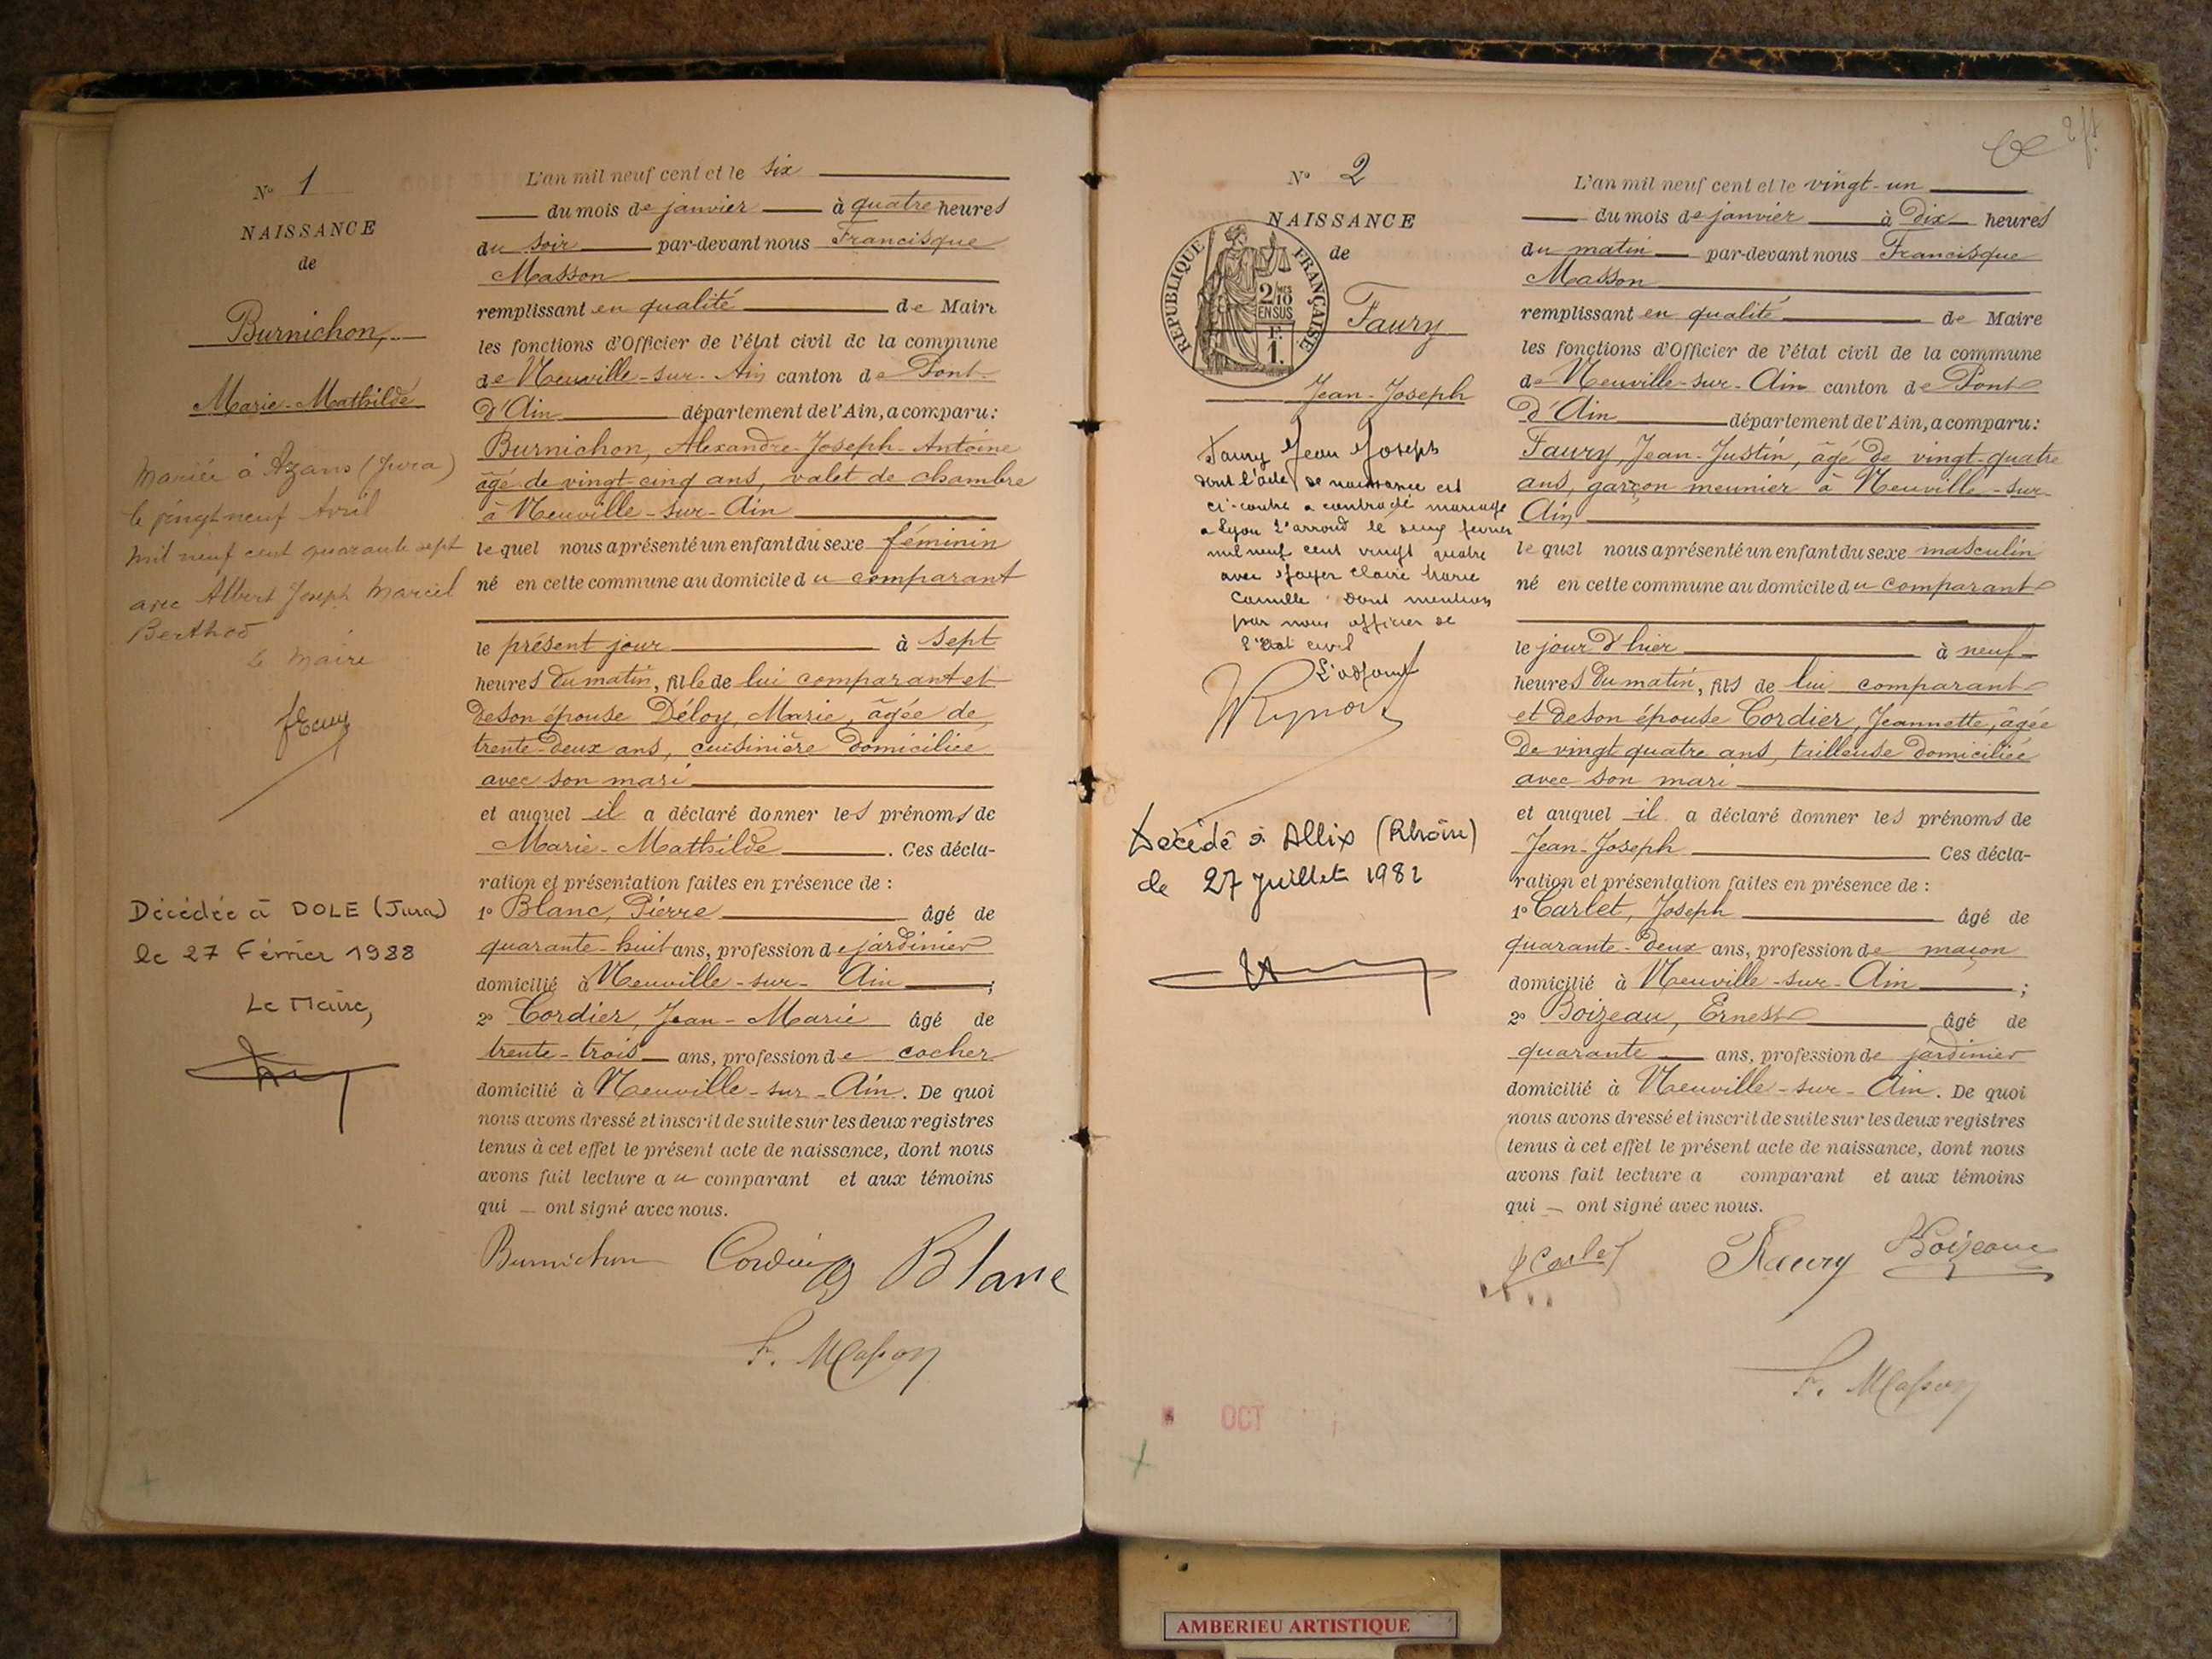 N° 1
NAISSANCE
de
Burnichon,
Marie-Mathilde
Mariée à Azans (Jura)
le vingt neuf Avril
mil neuf cent quarante sept
avec Albert Joseph Marcel
Berthod
Le Maire
Décédée à DOLE (Jura)
le 27 Février 1988
Le Maire,
L'an mil neuf cent et le six
du mois de janvier à quatre heures
du soir par-devant nous Francisque
Masson
remplissant en qualité de Maire
les fonctions d'Officier de l'état civil de la commune
de Neuville-sur-Ain canton de Pont-
d'Ain département de l'Ain, a comparu:
Burnichon, Alexandre-Joseph-Antoine
âgé de vingt-cinq ans, valet de chambre
à Neuville-sur-Ain
lequel nous a présenté un enfant du sexe féminin
né en cette commune au domicile du comparant
le présent jour à sept
heures du matin, fille de lui comparant et
de son épouse Déloy, Marie, âgée de
trente-deux ans, cuisinière domiciliée
avec son mari
et auquel il a déclaré donner les prénoms de
Marie-Mathilde. Ces décla-
ration et présentation faites en présence de :
1° Blanc, Pierre âgé de
quarante-huit ans, profession de jardinier
domicilié à Neuville-sur-Ain ;
2° Cordier, Jean-Marie âgé de
trente-trois ans, profession de cocher
domicilié à Neuville-sur-Ain. De quoi
nous avons dressé et inscrit de suite sur les deux registres
tenus à cet effet le présent acte de naissance, dont nous
avons fait lecture au comparant et aux témoins
qui ont signé avec nous.
Burnichon Cordier Blanc
F. Masson
N° 2
NAISSANCE
de
REPUBLIQUE FRANÇAISE
2/10 MES
EN SUS
F.
1.
Faury
Jean-Joseph
Faury Jean Joseph
dont l'acte de naissance est
ci-contre a contracté mariage
a Lyon 2e arrond le février
mil neuf cent vingt quatre
avec Claire Marie
Camille Dont mention
par nous officier de
l'Etat civil
L'adjoint
Décédé à Allix (Rhône)
le 27 Juillet 1981
2 ft
L'an mil neuf cent et le vingt-un
du mois de janvier à Dix heures
du matin par-devant nous Francisque
Masson
remplissant en qualité de Maire
les fonctions d'Officier de l'état civil de la commune
de Neuville-sur-Ain canton de Pont
d'Ain département de l'Ain, a comparu:
Faury, Jean-Justin, âgé de vingt-quatre
ans, garçon meunier à Neuville-sur-
Ain
lequel nous a présenté un enfant du sexe masculin
né en cette commune au domicile du comparant
le jour d'hier à neuf
heures du matin, fils de lui comparant
et de son épouse Cordier, Jeannette, âgée
de vingt quatre ans, tailleuse domiciliée
avec son mari
et auquel il a déclaré donner les prénoms de
Jean-Joseph Ces décla-
ration et présentation faites en présence de :
1° Carlet, Joseph âgé de
quarante-deux ans, profession de maçon
domicilié à Neuville-sur-Ain ;
2° Boizeau, Ernest âgé de
quarante ans, profession de jardinier
domicilié à Neuville-sur-Ain. De quoi
nous avons dressé et inscrit de suite sur les deux registres
tenus à cet effet le présent acte de naissance, dont nous
avons fait lecture a comparant et aux témoins
qui ont signé avec nous.
J Carlet Faury Boizeau
F. Masson
OCT
AMBERIEU ARTISTIQUE